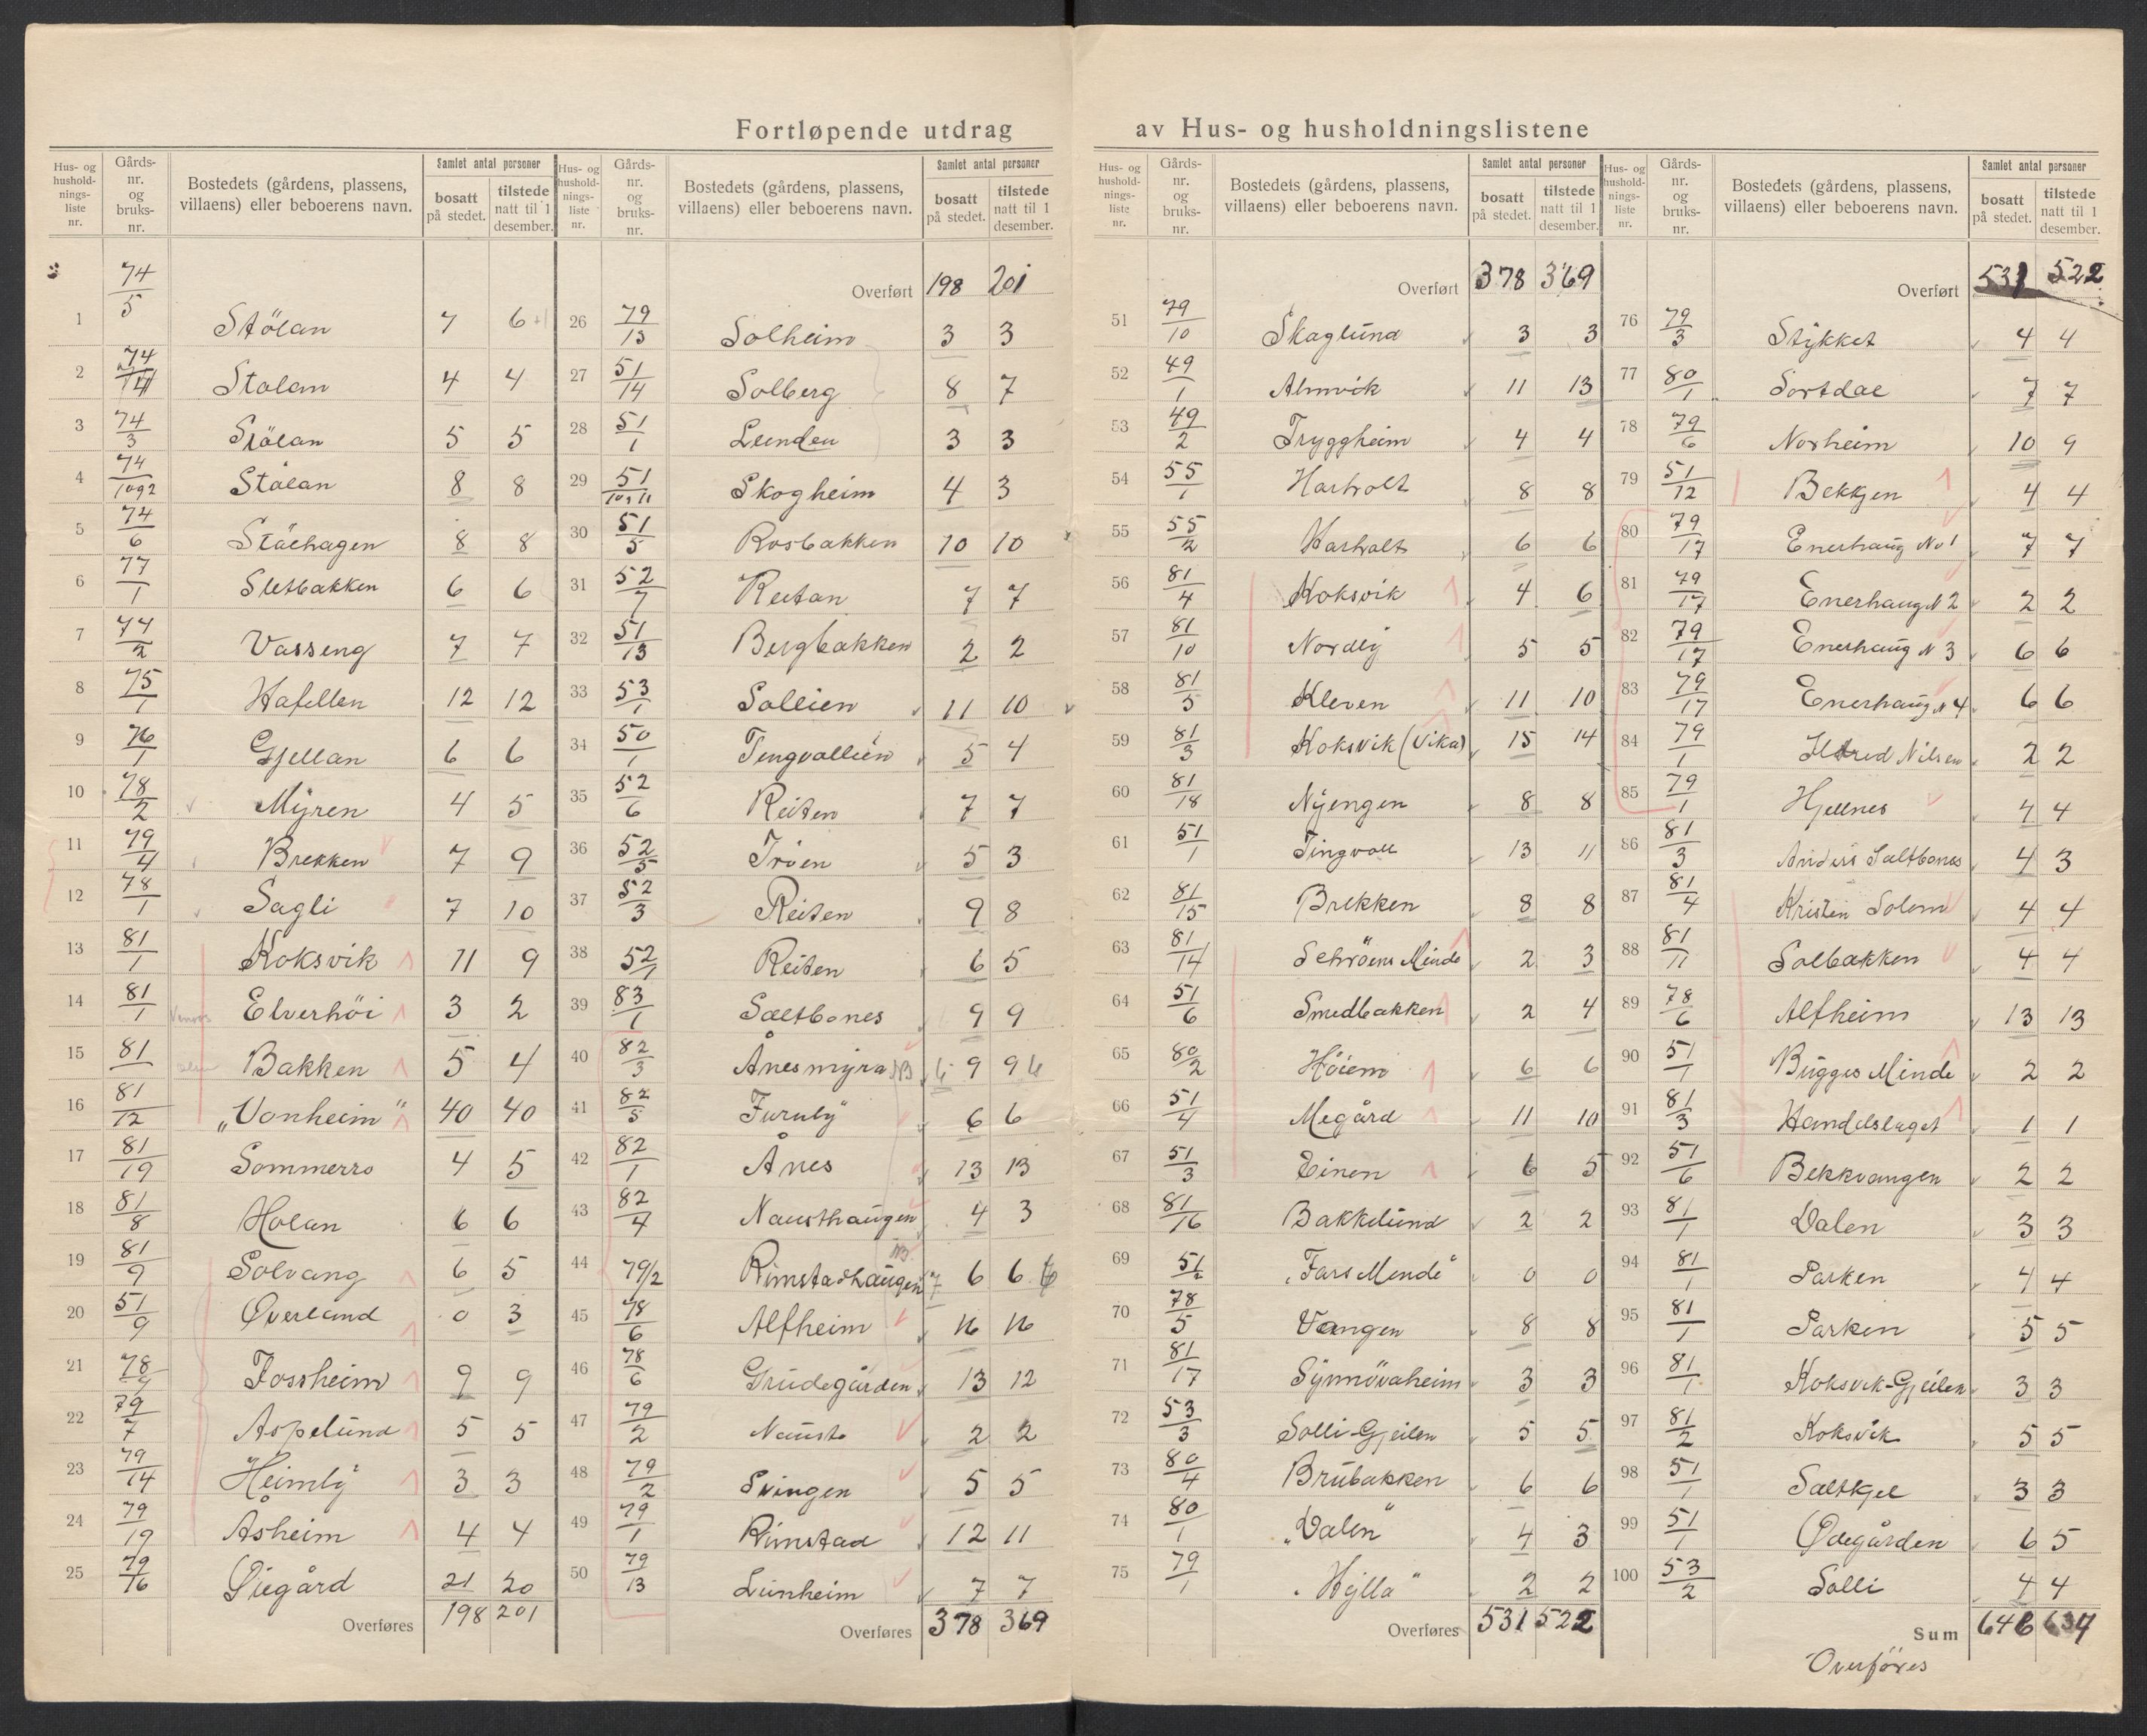 Fortløpende utdrag av Hus- og husholdningslistene
Hus- og hushold- nings- liste nr. | Gårds- nr. og bruks- nr. | Bostedets (gårdens, plassens, villaens) eller beboerens navn. | Samlet antal personer | bosatt på stedet. | tilstede natt til 1 desember.
1 74/5 Stölan 7 6
2 74/ Stölan 4 4
3 74/3 Stölan 5 5
4 74/1og2 Stölan 8 8
5 74/6 Stölhagen 8 8
6 77/1 Sletbakken 6 6
7 77/2 Vasseng 7 7
8 75/1 Hafellen 12 12
9 76/1 Gjellan 6 6
10 78/2 Myren 4 5
11 79/4 Brekken 7 9
12 78/1 Sagli 7 10
13 81/1 Koksvik 11 9
14 81/1 Elverhöi 3 2
15 81 Bakken 5 4
16 81/12 „Vonheim" 40 40
17 81/19 Sommerro 4 5
18 81/8 Holan 6 6
19 81/9 Solvang 6 5
20 51/9 Överland 0 3
21 78/ Fossheim 9 9
22 79/7 Aspelund 5 5
23 79/14 Heimly 3 3
24 79/19 Åsheim 4 4
25 79/16 Öiegård 21 20
Overføres 198 201
Hus- og hushold- nings- liste nr. | Gårds- nr. og bruks- nr. | Bostedets (gårdens, plassens, villaens) eller beboerens navn. | Samlet antal personer | bosatt på stedet. | tilstede natt til 1 desember.
Overført 198 201
26 79/15 Solheim 3 3
27 51/14 Solberg 8 7
28 51/1 Lunden 3 3
29 51/10og11 Skogheim 4 3
30 51/5 Rosbakken 10 10
31 52/7 Reitan 7 7
32 51/13 Bergbakken 2 2
33 53/1 Sollien 11 10
34 50/1 Tingvollien 5 4
35 52/6 Reiten 7 7
36 52/5 Tröen 5 3
37 52/3 Reiten 9 8
38 52/1 Reiten 6 5
39 83/1 Saltbones 9 9
40 82/3 Ånesmyra NB 9 9
41 82/5 Furuly 6 6
42 82/1 Ånes 13 13
43 82/4 Nausthaugen 4 3
44 79/2 Rimstadhaugen 6 6
45 78/6 Alfheim 16 16
46 78/6 Grudegården 13 12
47 79/2 Naust 2 2
48 79/2 Svingen 5 5
49 79/1 Rimstad 12 11
50 79/13 Lunheim 7 7
Overføres 378 369
Hus- og hushold- nings- liste nr. | Gårds- nr. og bruks- nr. | Bostedets (gårdens, plassens, villaens) eller beboerens navn. | Samlet antal personer | bosatt på stedet. | tilstede natt til 1 desember.
Overført 378 369
51 79/10 Skaglund 3 3
52 49/1 Almvik 11 13
53 49/2 Tryggheim 4 4
54 55/1 Harholt 8 8
55 55/2 Harholt 6 6
56 81/4 Koksvik 4 6
57 81/10 Nordly 5 5
58 81/5 Kleven 11 10
59 81/3 Koksvik (Vika) 15 14
60 81/18 Nyengen 8 8
61 51/1 Tingvoll 13 11
62 81/15 Brekken 8 8
63 81/14 Schröens Minde 2 3
64 51/6 Smedbakken 2 4
65 80/2 Höiem 6 6
66 51/4 Megård 11 10
67 51/3 Einen 6 5
68 81/16 Bakkelund 2 2
69 51/2 „Fars Minde" 0 0
70 78/5 Vangen 8 8
71 81/17 Synnövaheim 3 3
72 53/3 Solli-Gjeilen 5 5
73 80/4 Brubakken 6 6
74 80/1 „Dalen" 4 3
75 79/1 „Hylla" 2 2
Overføres 531 522
Hus- og hushold- nings- liste nr. | Gårds- nr. og bruks- nr. | Bostedets (gårdens, plassens, villaens) eller beboerens navn. | Samlet antal personer | bosatt på stedet. | tilstede natt til 1 desember.
Overført 531 522
76 79/3 Stykket 4 4
77 80/1 Sortdal 7 7
78 79/6 Norheim 10 9
79 51/12 Bekkjen 4 4
80 79/17 Enerhaug No 1 7 7
81 79/17 Enerhaug N 2 2 2
82 79/17 Enerhaug N 3 6 6
83 79/17 Enerhaug N 4 6 6
84 79/1 Nilsen 2 2
85 79/1 Hjellnes 4 4
86 81/3 Anders Saltbones 4 3
87 81/4 Kristen Solem 4 4
88 81/11 Solbakken 4 4
89 78/6 Alfheim 13 13
90 51/1 Bugges Minde 2 2
91 81/3 Handelslaget 1 1
92 51/6 Bekkvangen 2 2
93 81/1 Dalen 3 3
94 81/1 Parken 4 4
95 81/1 Parken 5 5
96 81/1 Koksvik-Gjeilen 3 3
97 81/2 Koksvik 5 5
98 51/1 Saltkjel 3 3
99 51/1 Ödegården 6 5
100 53/2 Solli 4 4
Sum 646 637
Overföres